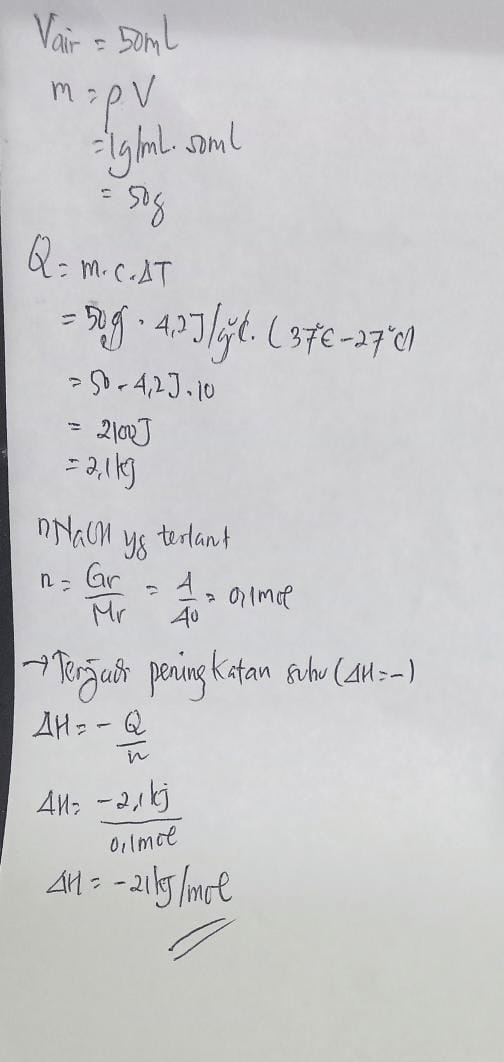 Vair = 50mL
m = ρ V
= 1g/mL. 50mL
= 50g
Q = m.c.ΔT
= 50g . 4,2J/g°C. (37°C-27°C)
= 50 . 4,2J.10
= 2100J
= 2,1kJ
n NaOH yg terlarut
n = Gr/Mr = 4/40 = 0,1mol
→ Terjadi peningkatan suhu (ΔH=-)
ΔH = - Q/n
ΔH = -2,1kj/0,1mol
ΔH = -21kJ/mol